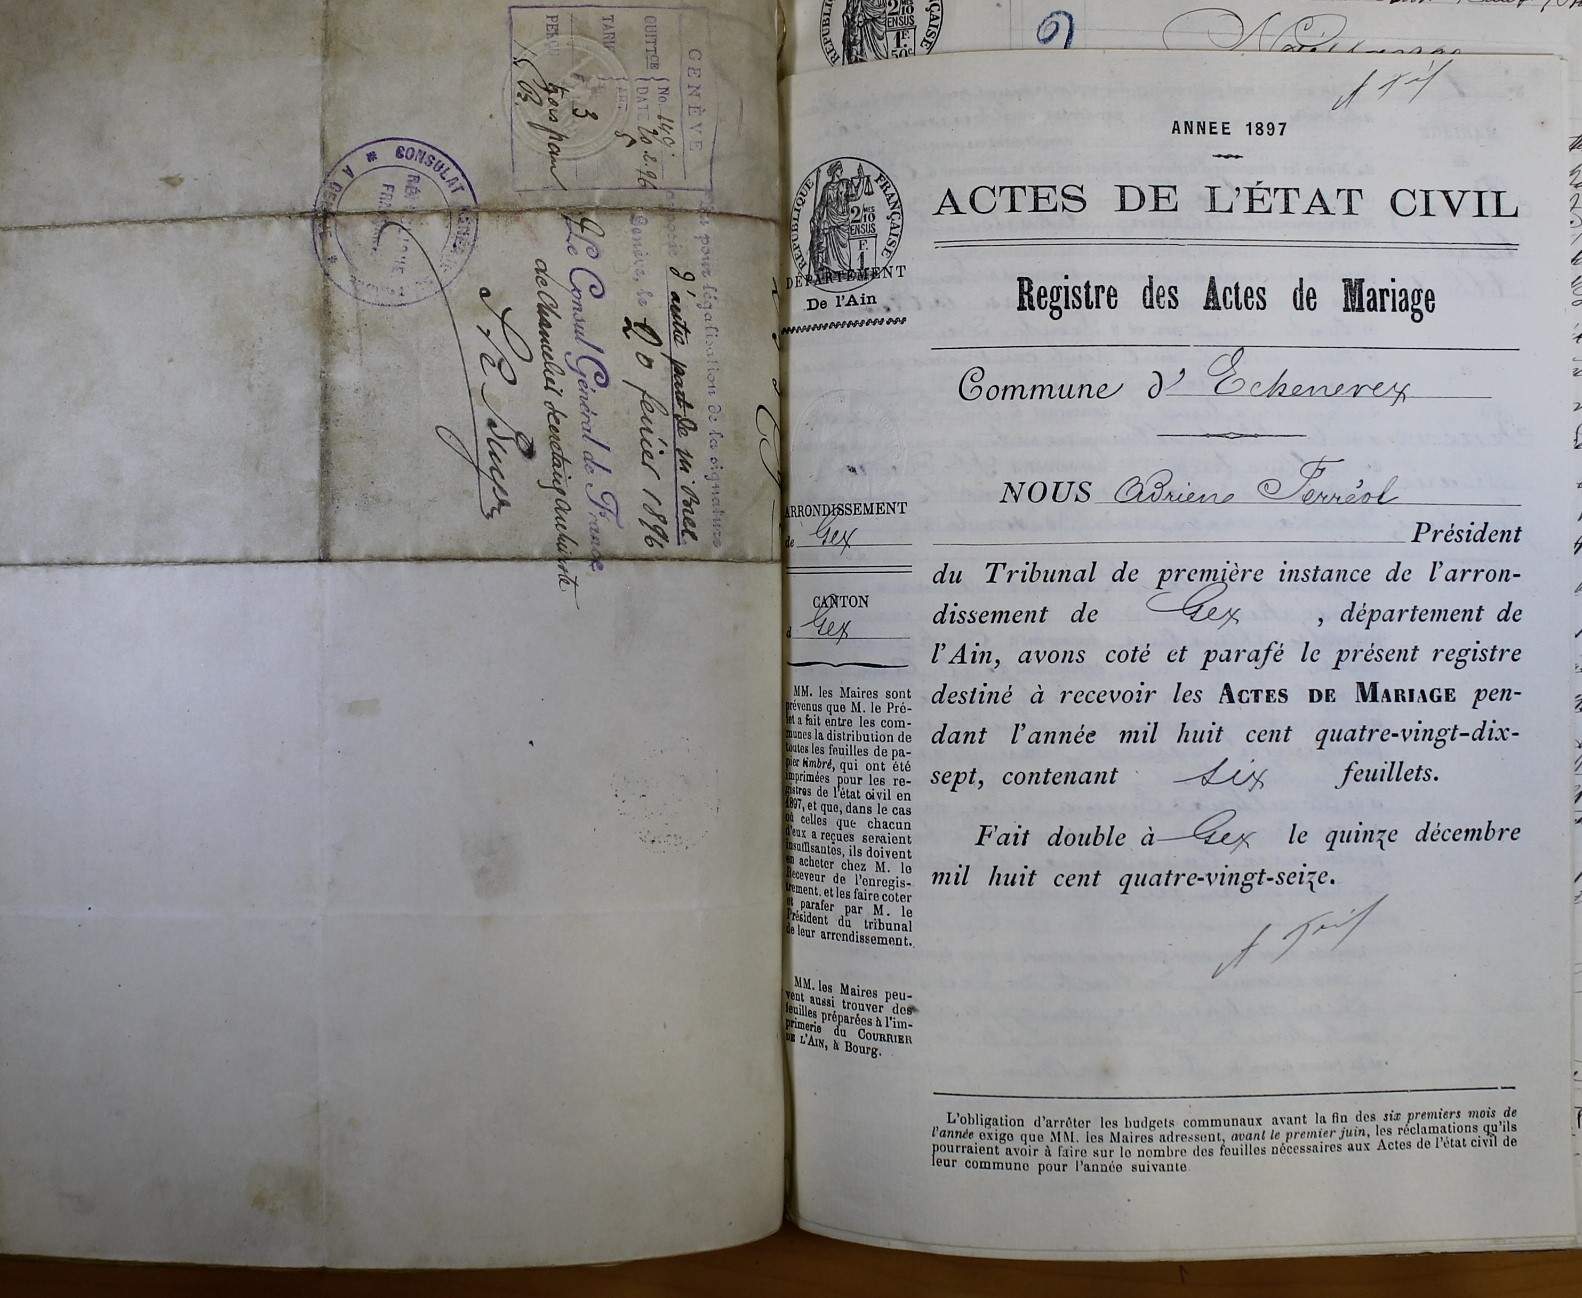 GENÈVE
QUITTCE { No. 149
{ DATE 20.2.96
TARIF { ART. 5
PERÇU
3
trois francs
Vu pour légalisation de la signature
d'autre part de M. Brel.
Genève, le 20 février 1896
Le Consul Général de France,
CONSULAT GÉNÉRAL
A GENÈVE
RÉPUBLIQUE
FRANÇAISE
RÉPUBLIQUE FRANÇAISE
2 MES
10
EN SUS
1F.
50c
ANNEE 1897
ACTES DE L'ÉTAT CIVIL
RÉPUBLIQUE FRANÇAISE
2 MES
10
EN SUS
F.
1
DÉPARTEMENT
De l'Ain
Registre des Actes de Mariage
Commune d' Echenevex
ARRONDISSEMENT
de Gex
CANTON
d Gex
NOUS Adrien Ferréol
Président
du Tribunal de première instance de l'arron-
dissement de Gex, département de
l'Ain, avons coté et parafé le présent registre
destiné à recevoir les ACTES DE MARIAGE pen-
dant l'année mil huit cent quatre-vingt-dix-
sept, contenant six feuillets.
Fait double à Gex le quinze décembre
mil huit cent quatre-vingt-seize.
MM. les Maires sont
prévenus que M. le Pré-
fet a fait entre les com-
munes la distribution de
toutes les feuilles de pa-
pier timbré, qui ont été
imprimées pour les re-
gistres de l'état civil en
1897, et que, dans le cas
où celles que chacun
d'eux a reçues seraient
insuffisantes, ils doivent
en acheter chez M. le
Receveur de l'enregis-
trement, et les faire coter
et parafer par M. le
Président du tribunal
de leur arrondissement.
MM. les Maires peu-
vent aussi trouver des
feuilles préparées à l'im-
primerie du COURRIER
DE L'AIN, à Bourg.
L'obligation d'arrêter les budgets communaux avant la fin des six premiers mois de
l'année exige que MM. les Maires adressent, avant le premier juin, les réclamations qu'ils
pourraient avoir à faire sur le nombre des feuilles nécessaires aux Actes de l'état civil de
leur commune pour l'année suivante